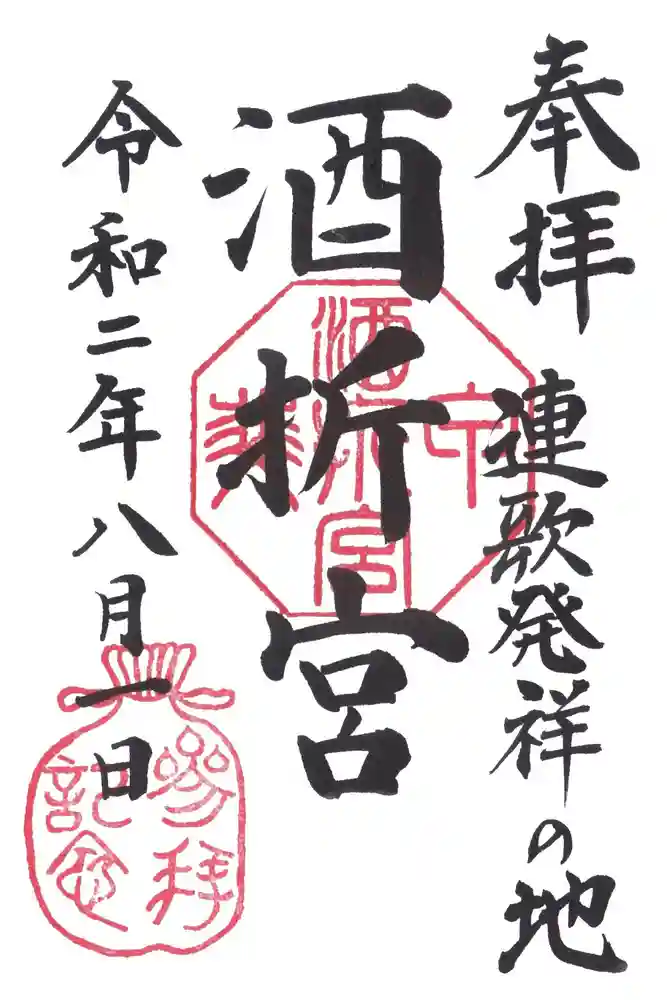 奉拝 連歌発祥の地
酒折宮
令和二年八月一日
酒折宮
参拜
記念